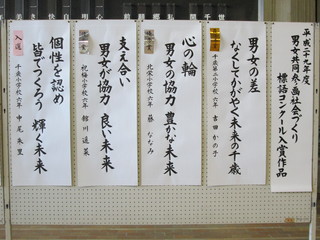 平成二十九年度
男女共同参画社会づくり
標語コンクール入賞作品
男女の差
なくしてかがやく未来の千歳
千歳第二小学校六年 吉田 かの子
心の輪
男女の協力 豊かな未来
北栄小学校六年 藤 ななみ
支え合い
男女が協力 良い未来
祝梅小学校六年 舘川 遥菜
入選
個性を認め
皆でつくろう 輝く未来
千歳小学校六年 中尾 朱里